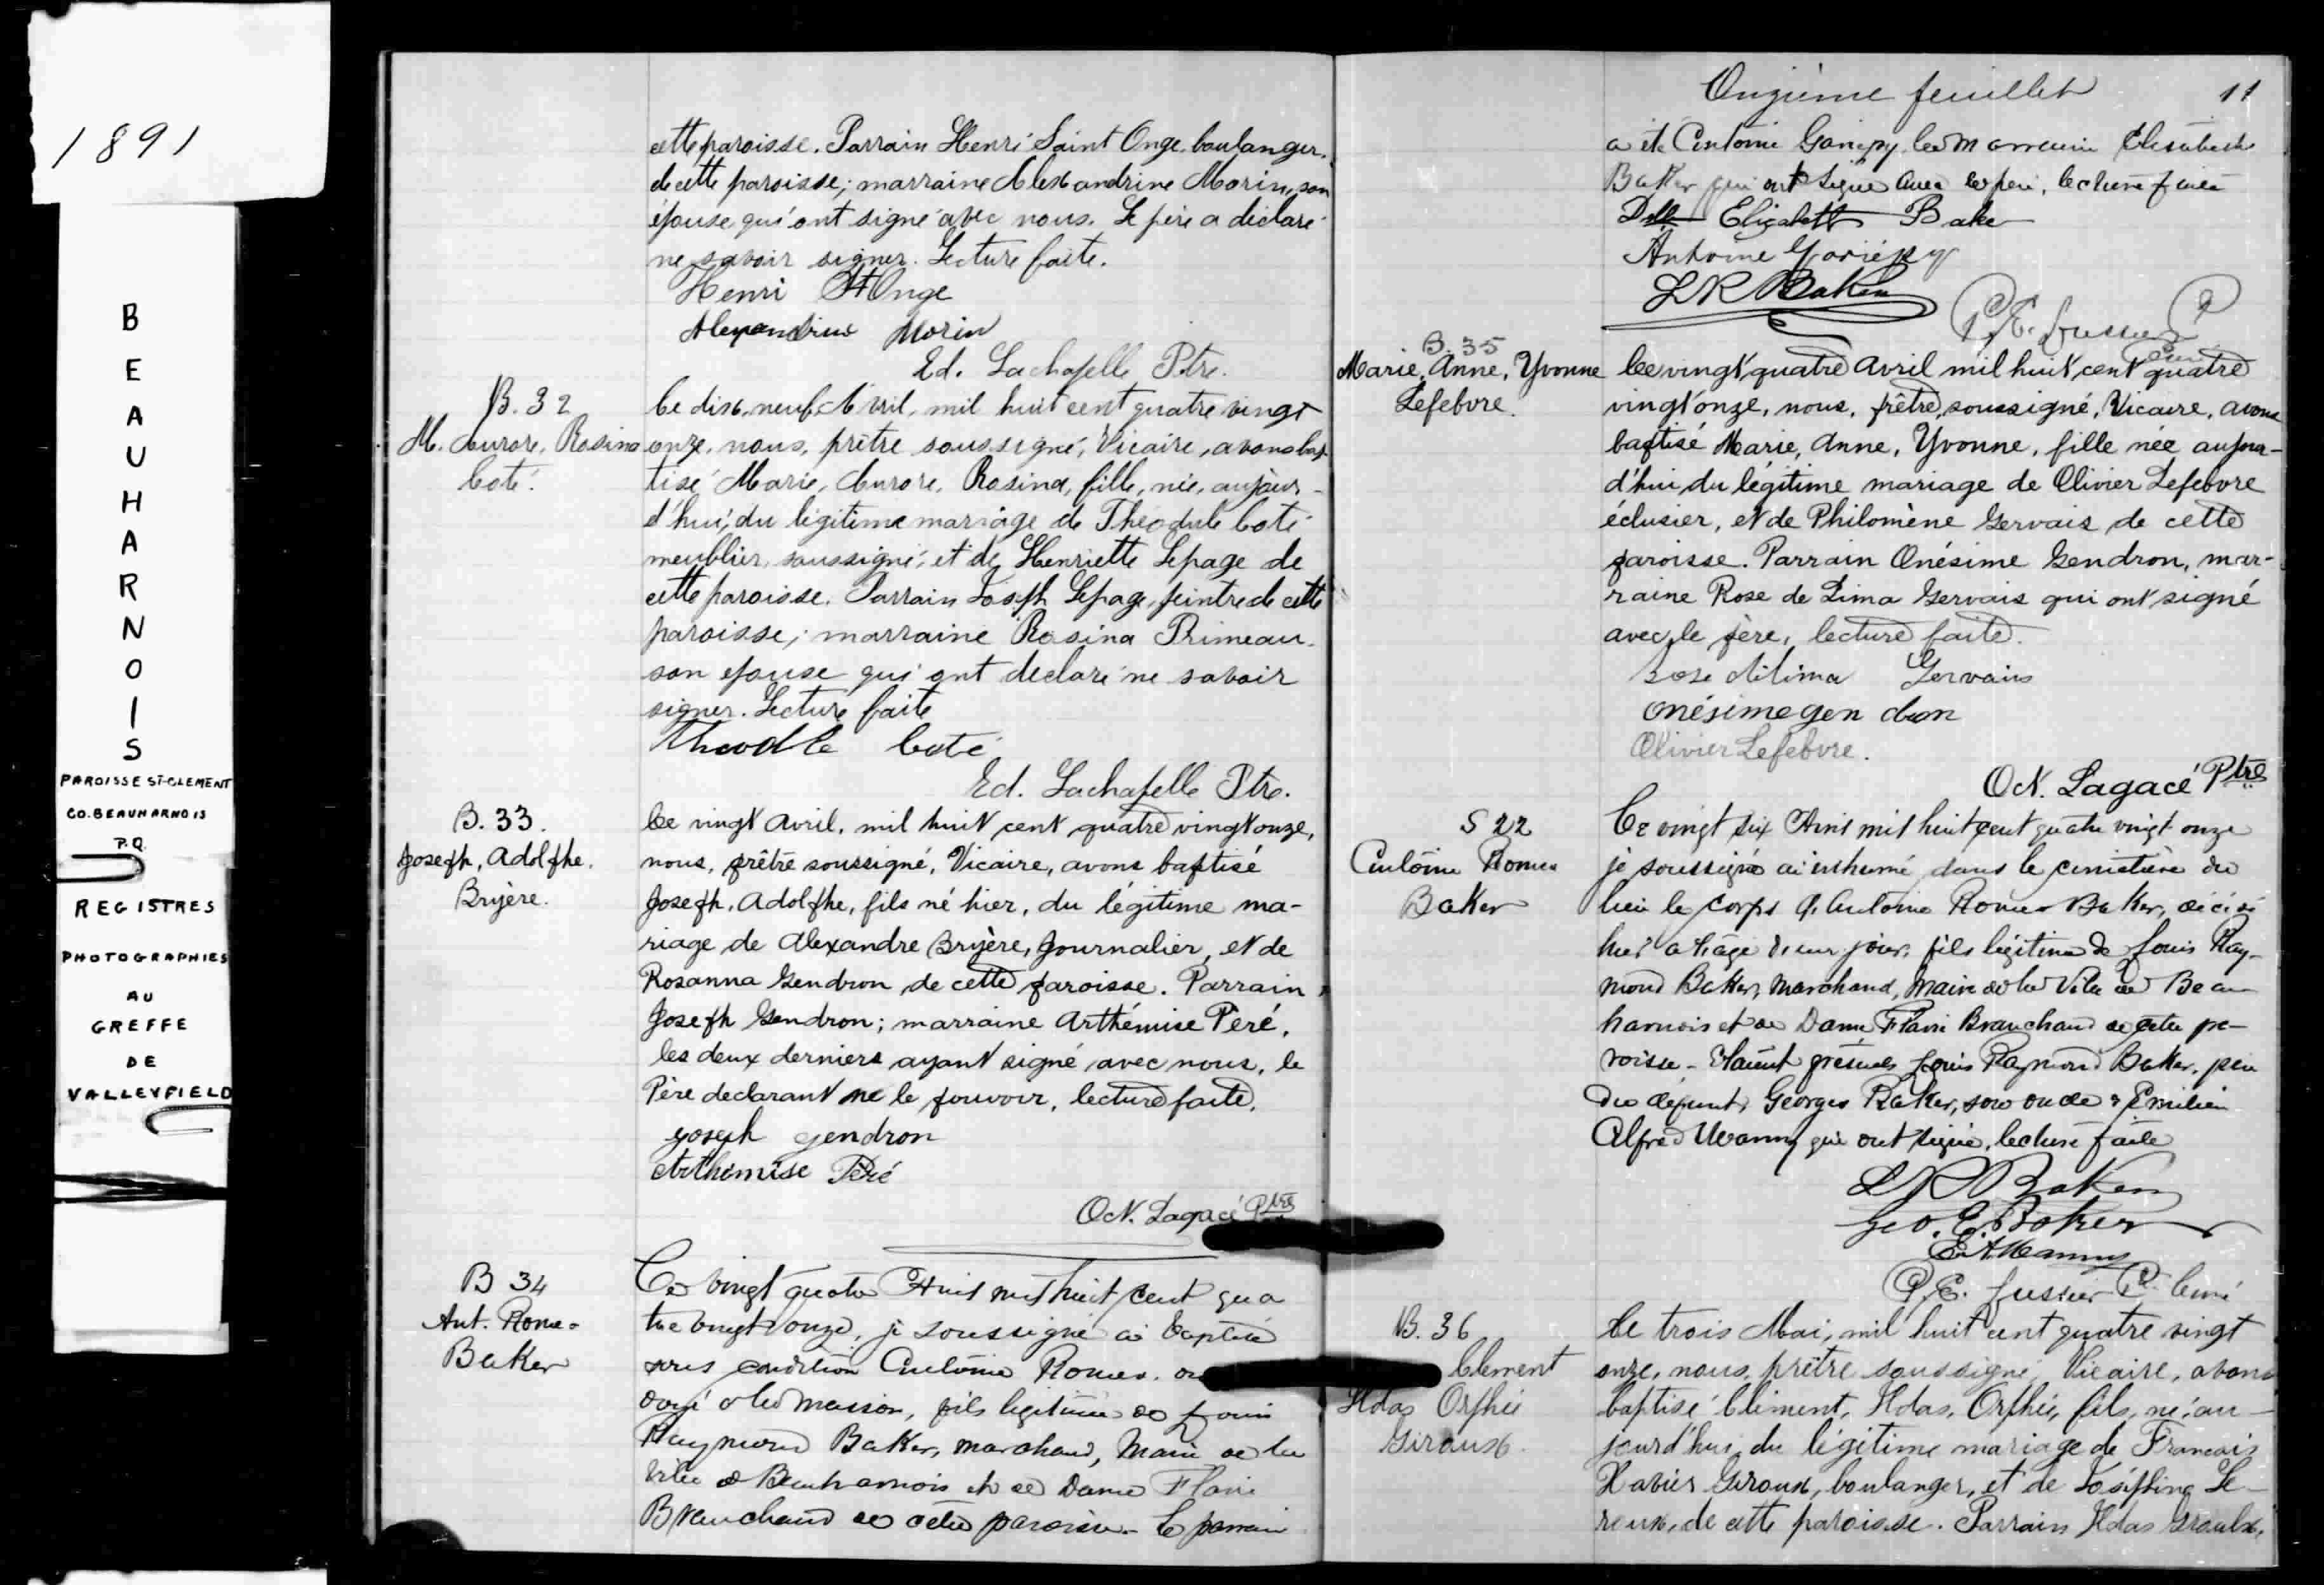 1891
BEAUHARNOIS
PAROISSE ST-CLEMENT
CO. BEAUHARNOIS
P.Q.
REGISTRES
PHOTOGRAPHIES
AU
GREFFE
DE
VALLEYFIELD
cette paroisse. Parrain Henri Saint Onge boulanger.
de cette paroisse; marraine Alexandrine Morin, son
épouse qui ont signé avec nous. Le père a déclaré
ne savoir signer. Lecture faite.
Henri St Onge
Alexandrine Morin
Ed. Lachapelle Ptre.
B. 32
M. Aurore, Rosina
Coté.
Ce dix neuf Avril, mil huit cent quatre vingt
onze, nous, prêtre soussigné, Vicaire, avons bap
tisé Marie, Aurore, Rosina, fille, née, aujour-
d'hui, du légitime mariage de Théodule Coté
meublier, soussigné, et de Henriette Lepage de
cette paroisse. Parrain Joseph Lepage, peintre de cette
paroisse; marraine Rosina Primeau.
son epouse qui ont declaré ne savoir
signer. Lecture faite
Coté
Ed. Lachapelle Ptre.
B. 33.
Joseph, Adolphe.
Bryère.
Ce vingt Avril, mil huit cent quatre vingt onze,
nous, prêtre soussigné, Vicaire, avons baptisé
Joseph, Adolphe, fils né hier, du légitime ma-
riage de Alexandre Bryère, Journalier, et de
Rosanna Gendron de cette paroisse. Parrain
Joseph Gendron; marraine Arthémise Péré,
les deux derniers ayant signé avec nous, le
Père declarant ne le pouvoir, lecture faite.
joseph gendron
Arthémise Péré
O.N. Lagacé Ptre
B 34
Ant. Romeo
Baker
Ce vingt quatre Avril mil huit cent qua
tre vingt onze, je soussigné ai baptisé
sous condition Antoine Romeo
à la maison, fils légitime de Louis
Raymond Baker, marchand, Maire de la
ville de Beauharnois et de Dame Flavie
Branchaud de cette paroisse. Le parrain
Onzième feuillet 11
a été Antoine Gariépy la marraine Elisabeth
Baker qui ont signé avec le père, lecture faite
Delle Elizabeth Baker
Antoine Gariépy
L R Baker
P. E. Lussier Ptre
Curé
B. 35
Marie, Anne, Yvonne
Lefebvre.
Ce vingt quatre Avril mil huit cent quatre
vingt onze, nous, prêtre, soussigné, Vicaire, avons
baptisé Marie, Anne, Yvonne, fille née aujour-
d'hui, du légitime mariage de Olivier Lefebvre
éclusier, et de Philomène Gervais de cette
paroisse. Parrain Onésime Gendron, mar-
raine Rose de Lima Gervais qui ont signé
avec le père, lecture faite.
Rose délima Gervais
onésime gen dron
Olivier Lefebvre.
O.N. Lagacé Ptre
S 22
Antoine Romeo
Baker
Ce vingt six Avril mil huit cent quatre vingt onze
je soussigné ai inhumé dans le cimetière du
lieu le corps d'Antoine Romeo Baker, décédé
hier à l'âge d'un jour, fils légitime de Louis Ray-
mond Baker, Marchand, Maire de la Ville de Beau
harnois et de Dame Flavie Branchaud de cette pa-
roisse - Etaient présents Louis Raymond Baker, père
du défunt, Georges Baker, son oncle & Emilien
Alfred Manny qui ont signé, lecture faite
L R Baker
Geo. E. Baker
E. A. Manny
P. E. Lussier Ptre Curé
B. 36
Clement
Hdas Orphée
Giroux.
Ce trois Mai, mil huit cent quatre vingt
onze, nous, prêtre soussigné, Vicaire, avons
baptisé Clément, Hdas, Orphée, fils, né, au-
jourd'hui, du légitime mariage de Francois
Xavier Giroux, boulanger, et de Joséphine Le-
roux, de cette paroisse. Parrain Hdas Groulx,